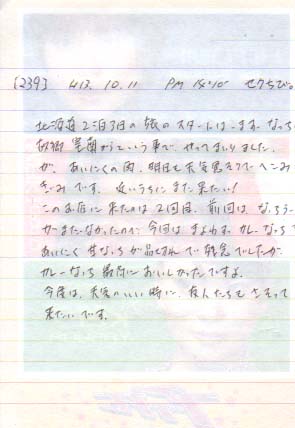 [239] H13. 10. 11 PM 14:10 セクちび。
北海道2泊3日の旅のスタートは、まず、なっち
故郷室蘭からという事で、やってまいりました。
が、あいにくの雨、明日も天気悪そうでへこみ
ぎみです。近いうちにまた来たい!
このお店に来たのは2回目。前回は、なっち
カレー
あいにく が品切れで残念でしたが
カレーなっち 最高においしかったですよ。
今度は、天気のいい時に、友人たちをさそって
来たいです。